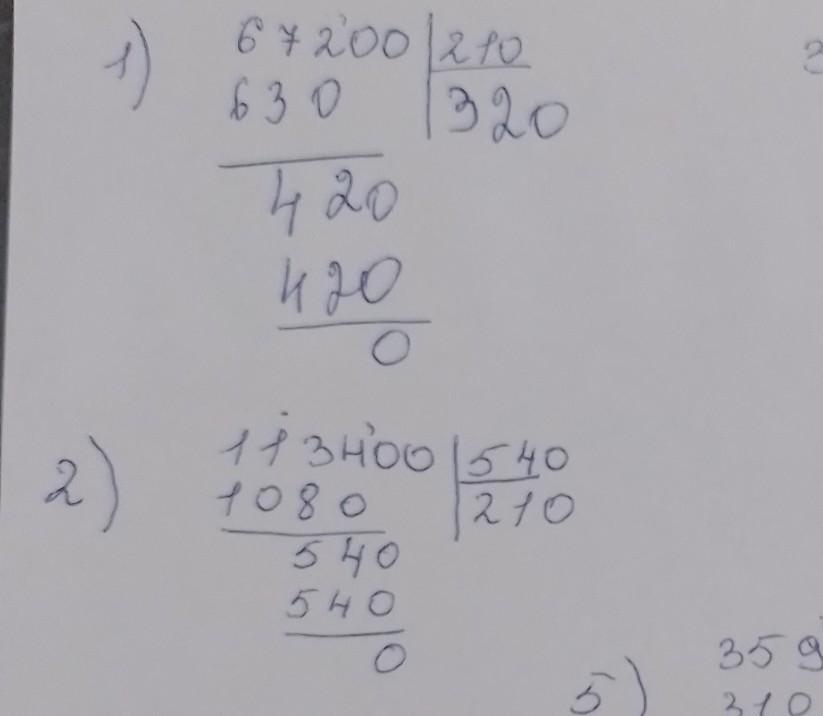 1) 67200 210
630 320
420
420
0
2) 113400 540
1080 210
540
540
0
5) 359
310